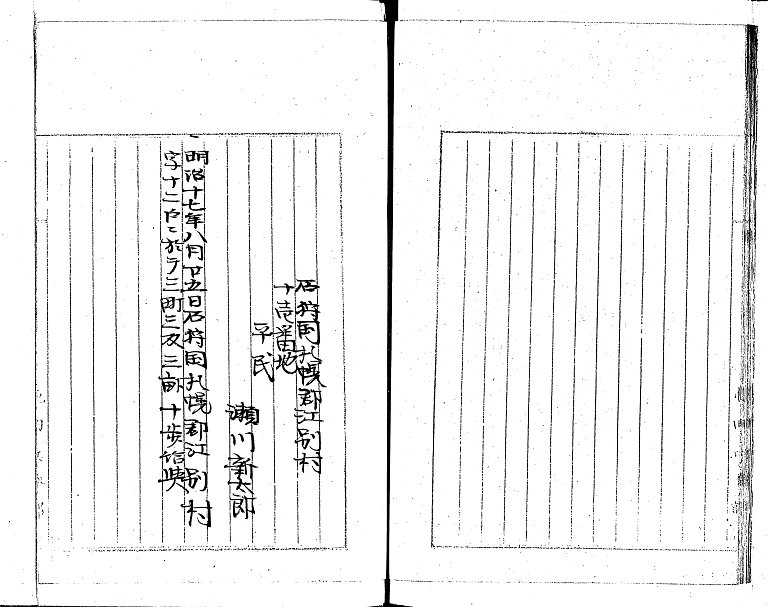 石狩国札幌郡江別村
十壱番地
平民
瀬川新太郎
明治十七年八月廿五日石狩国札幌郡江別村
字十二戸ニ於テ三町三反三畝十歩給與